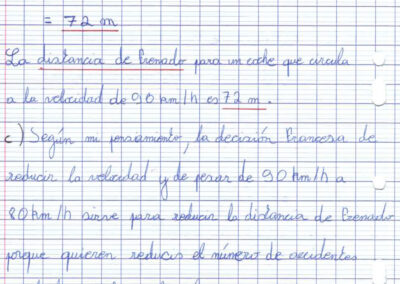 = 72 m
La distancia de frenado para un coche que circula
a la velocidad de 90 km/h es 72 m.
c) Según mi pensamiento, la decisión francesa de
reducir la velocidad y de pasar de 90 km/h a
80 km/h sirve para reducir la distancia de frenado
porque quieren reducir el número de accidentes